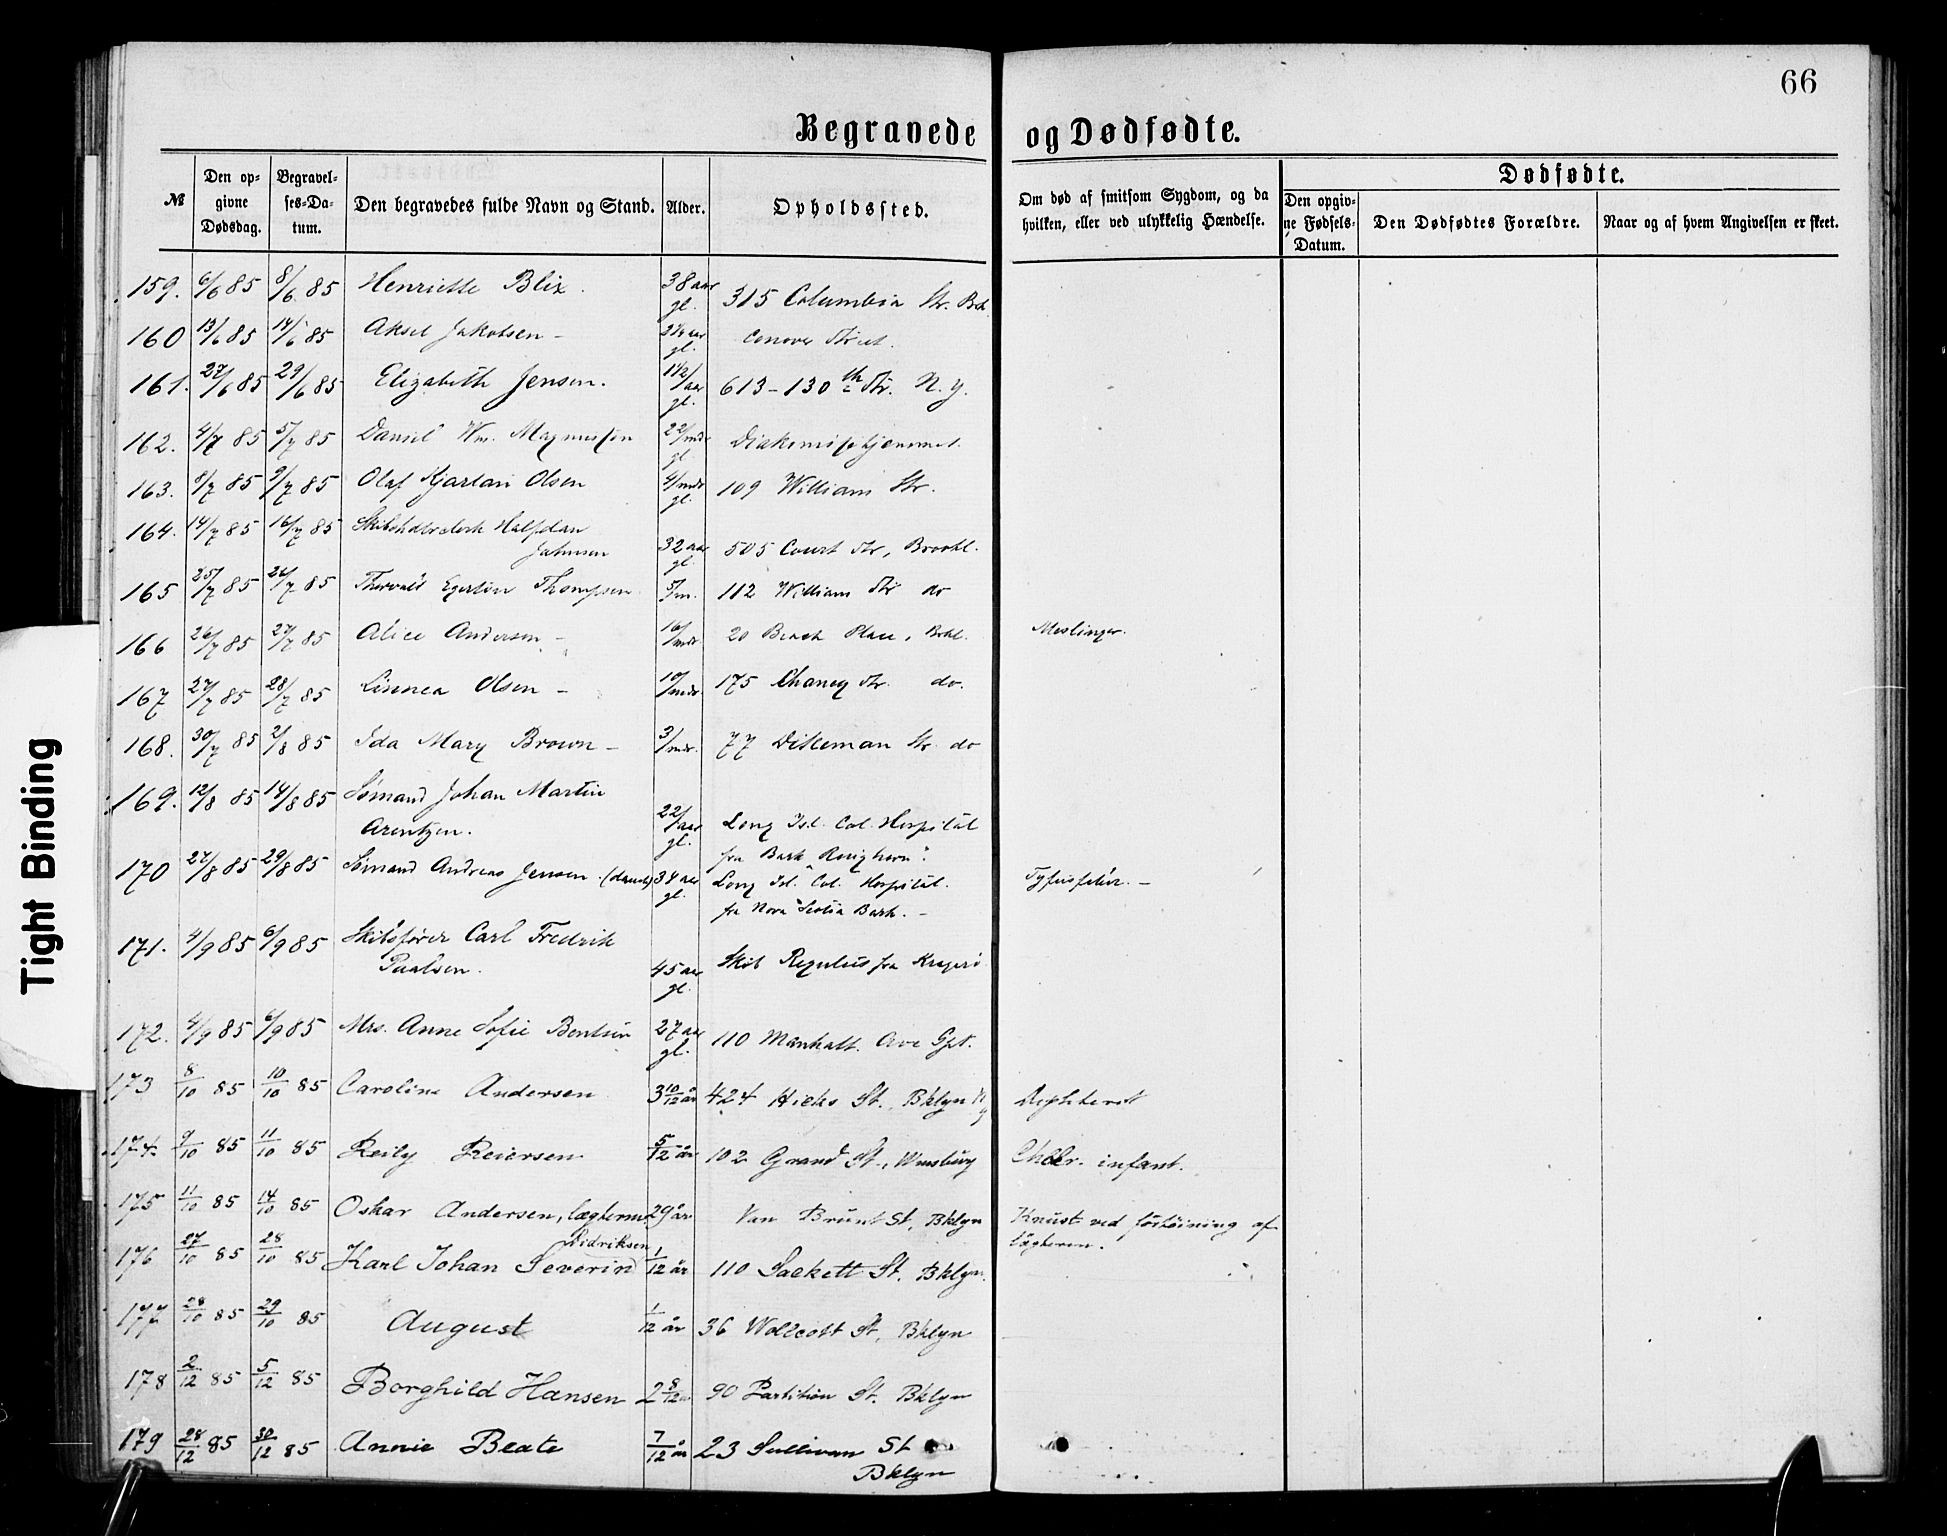 66
Begravede og Dødfødte.
№ Den opgivne Dødsdag. Begravelses-Datum. Den begravedes fulde Navn og Stand. Alder. Opholdssted. Om død af smitsom Sygdom, og da hvilken, eller ved ulykkelig Hændelse. Dødfødte. Den opgivne Fødsels-Datum. Den Dødfødtes Forældre. Naar og af hvem Angivelsen er skeet.
159. 6/6 85 8/6 85 Henriette Blix. 38 aar gl. 315 Columbia Str.
160 13/6 85 14/6 85 Aksel Jakobsen – aar gl. Conover Street.
161. 27/6 85 29/6 85 Elizabeth Jensen. 1½/aar gl. 613 – 130th Str. N. Y.
162. 4/7 85 5/7 85 Daniel Wm. Magnussen 22/mdr gl. Diakonissehjemmet.
163. 8/7 85 9/7 85 Olaf Kjartan Olsen 4/mdr gl. 109 William Str.
164. 14/7 85 16/7 85 Halfdan
Johnsen 32 aar gl. 505 Court Str, Brookl.
165 25/7 85 26/7 85 Thorvald Egerton Thompsen 5/m. 112 William Str do
166 26/7 85 27/7 85 Alice Andersen – 16/mdr. 20 Beach Place, Brkl. Meslinger.
167 27/7 85 28/7 85 Linnea Olsen – 10/mdr. 175 Str. do.
168. 30/7 85 2/8 85 Ida Mary Brown – 3/mdr. 77 Dikeman Str. do
169. 12/8 85 14/8 85 Sømand Johan Martin
Arentzen. 22/aar gl. Long Isl. Col. Hospital
fra Bark „Ringhorn".
170 27/8 85 29/8 85 Sømand Andreas Jensen. (dansk) 34 aar gl. Long Isl. Col. Hospital. Tyfusfeber. –
fra Nova Scotia Bark. –
171. 4/9 85 6/9 85 Skibsfører Carl Fredrik
Paulsen. 45 aar gl. Skib Regulus fra Kragerø
172. 4/9 85 6/9 85 Mrs. Anne Sofie Bentsen 27 aar gl. 110 Manhatt. Ave Gpt.
173 8/10 85 10/10 85 Caroline Andersen 3 10/12 år 424 Hicks St., Bklyn N Y Diphterit
174 9/10 85 11/10 85 Reily Reiersen 5/12 år 102 Grand St., Wmsburg Choler. infant.
175 11/10 85 14/10 85 Oskar Andersen, lægterm. 29 år Van Brunt St, Bklyn Knust ved forhøining af
lægteren.
176 27/10 85 28/10 85 Karl Johan Severin Didriksen 1/12 år 110 Sackett St. Bklyn.
177 28/10 85 29/10 85 August 1/12 år 36 Wollcott St, Bklyn
178 2/12 85 5/12 85 Borghild Hansen 2 8/12 90 Partition St. Bklyn
179 28/12 85 30/12 85 Annie Beate 7/12 år 23 Sullivan St
Bklyn
Tight Binding